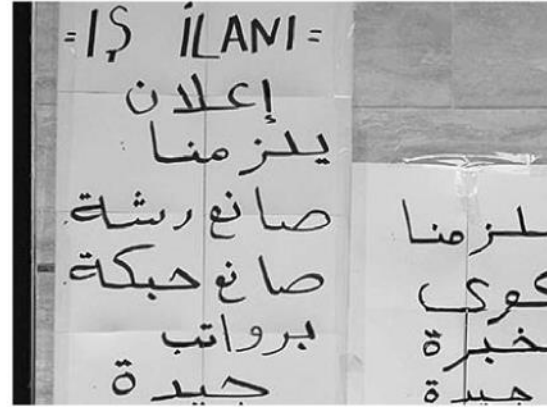 =IŞ İLANI=
إعلان
يلزمنا
صانع رشة
صانع حبكة
برواتب
جيدة
يلزمنا
كوى
خبرة
جيدة